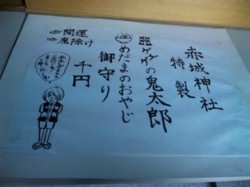 赤城神社
特製
ゲゲゲの鬼太郎
めだまのおやじ
御守り
千円
開運
鬼除け